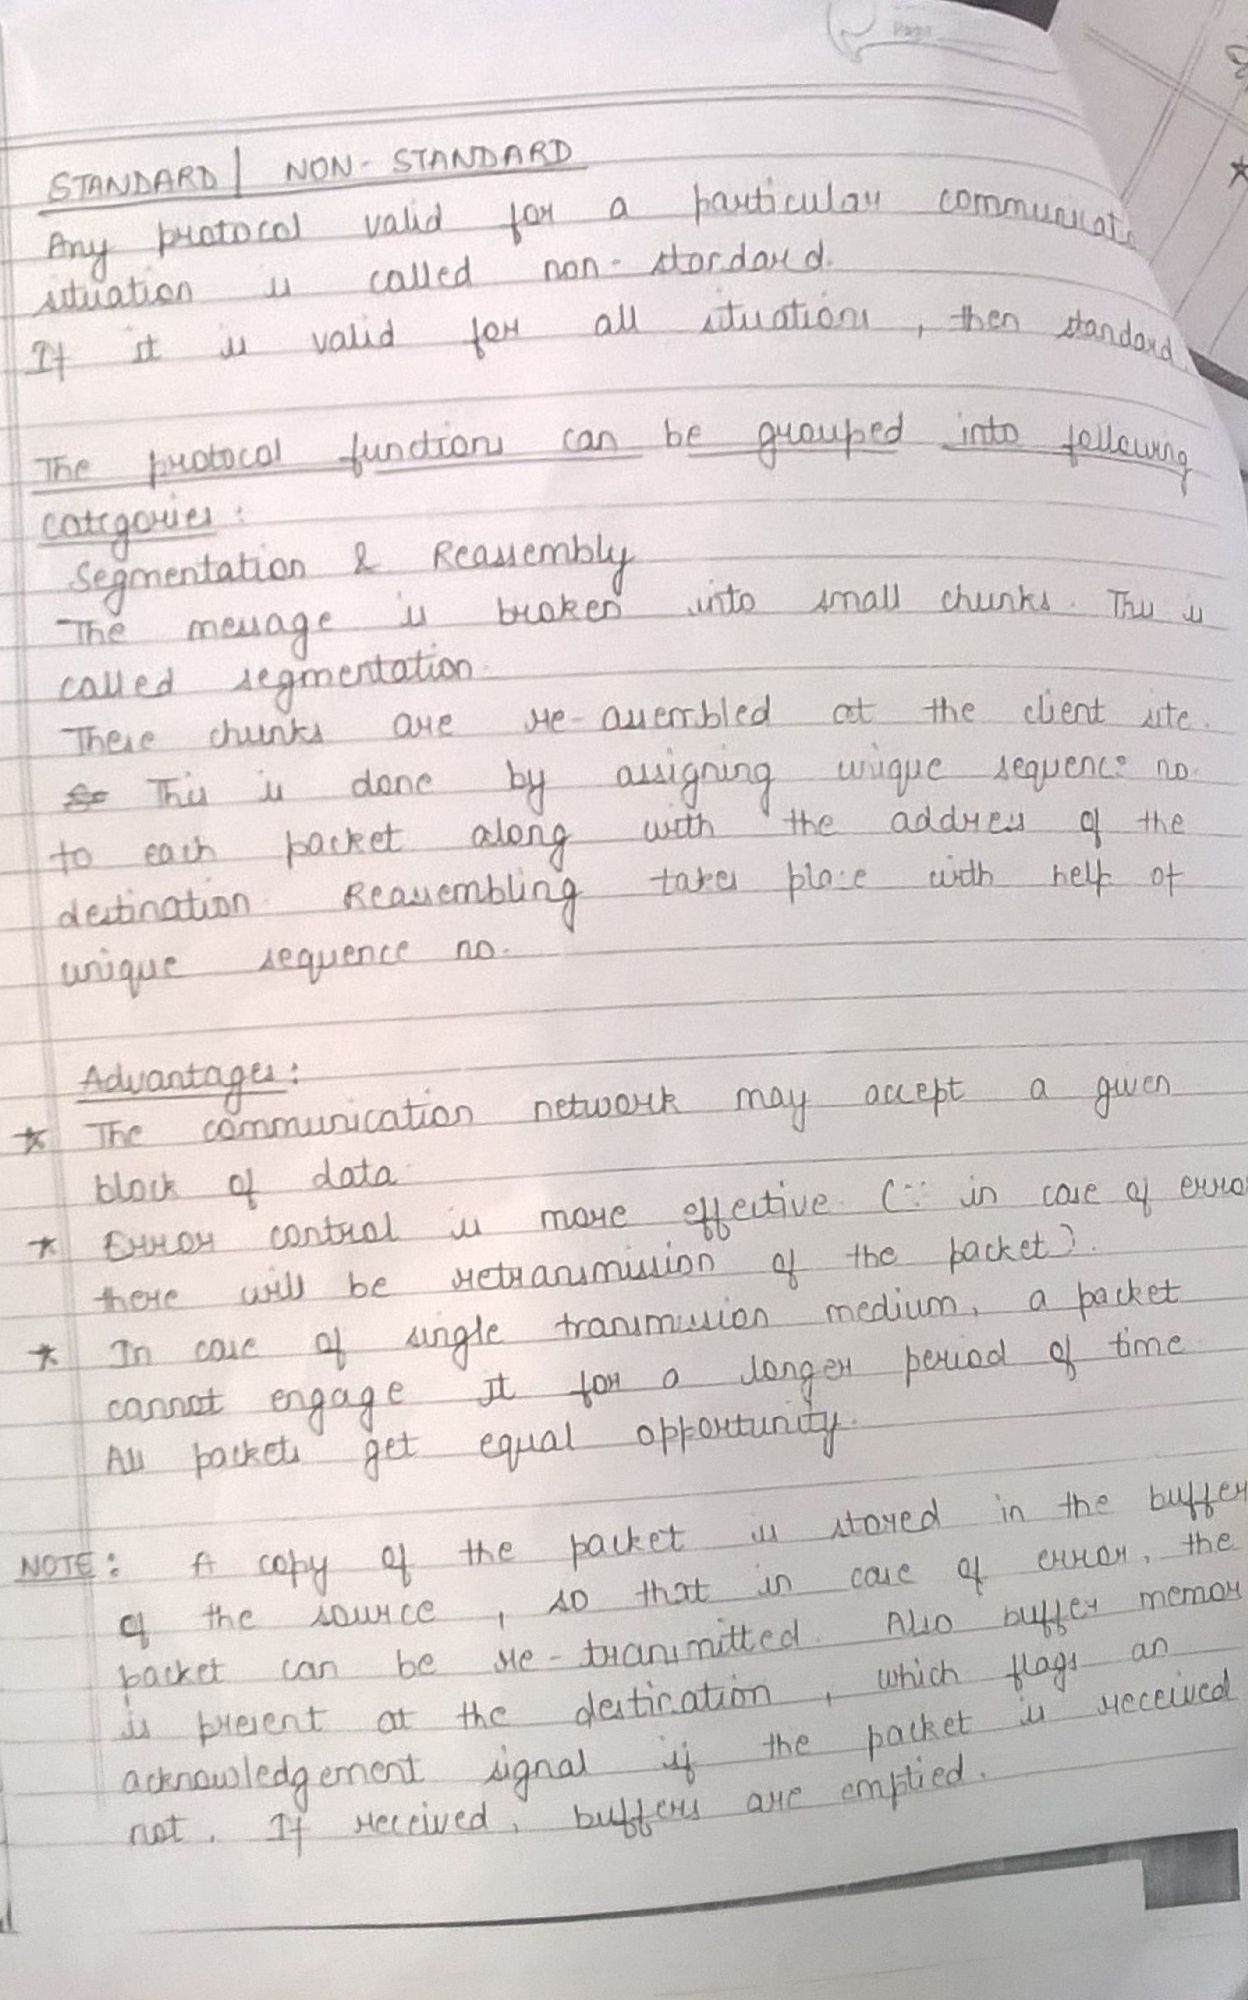 Page
STANDARD | NON-STANDARD
Any protocol valid for a particular communicat
situation is called non-standard.
If it is valid for all situations, then standard.
The protocol functions can be grouped into following
categories:
Segmentation & Reassembly
The message is broken into small chunks. This is
called segmentation.
These chunks are re-assembled at the client site.
This is done by assigning unique sequence no.
to each packet along with the address of the
destination. Reassembling takes place with help of
unique sequence no.
Advantages:
* The communication network may accept a given
block of data.
* Error control is more effective. (∵ in case of erro
there will be retransmission of the packet).
* In case of single transmission medium, a packet
cannot engage it for a longer period of time
All packets get equal opportunity.
NOTE: A copy of the packet is stored in the buffer
of the source, so that in case of error, the
packet can be re-transmitted. Also buffer memor
is present at the destination, which flags an
acknowledgement signal if the packet is received
not. If received, buffers are emptied.